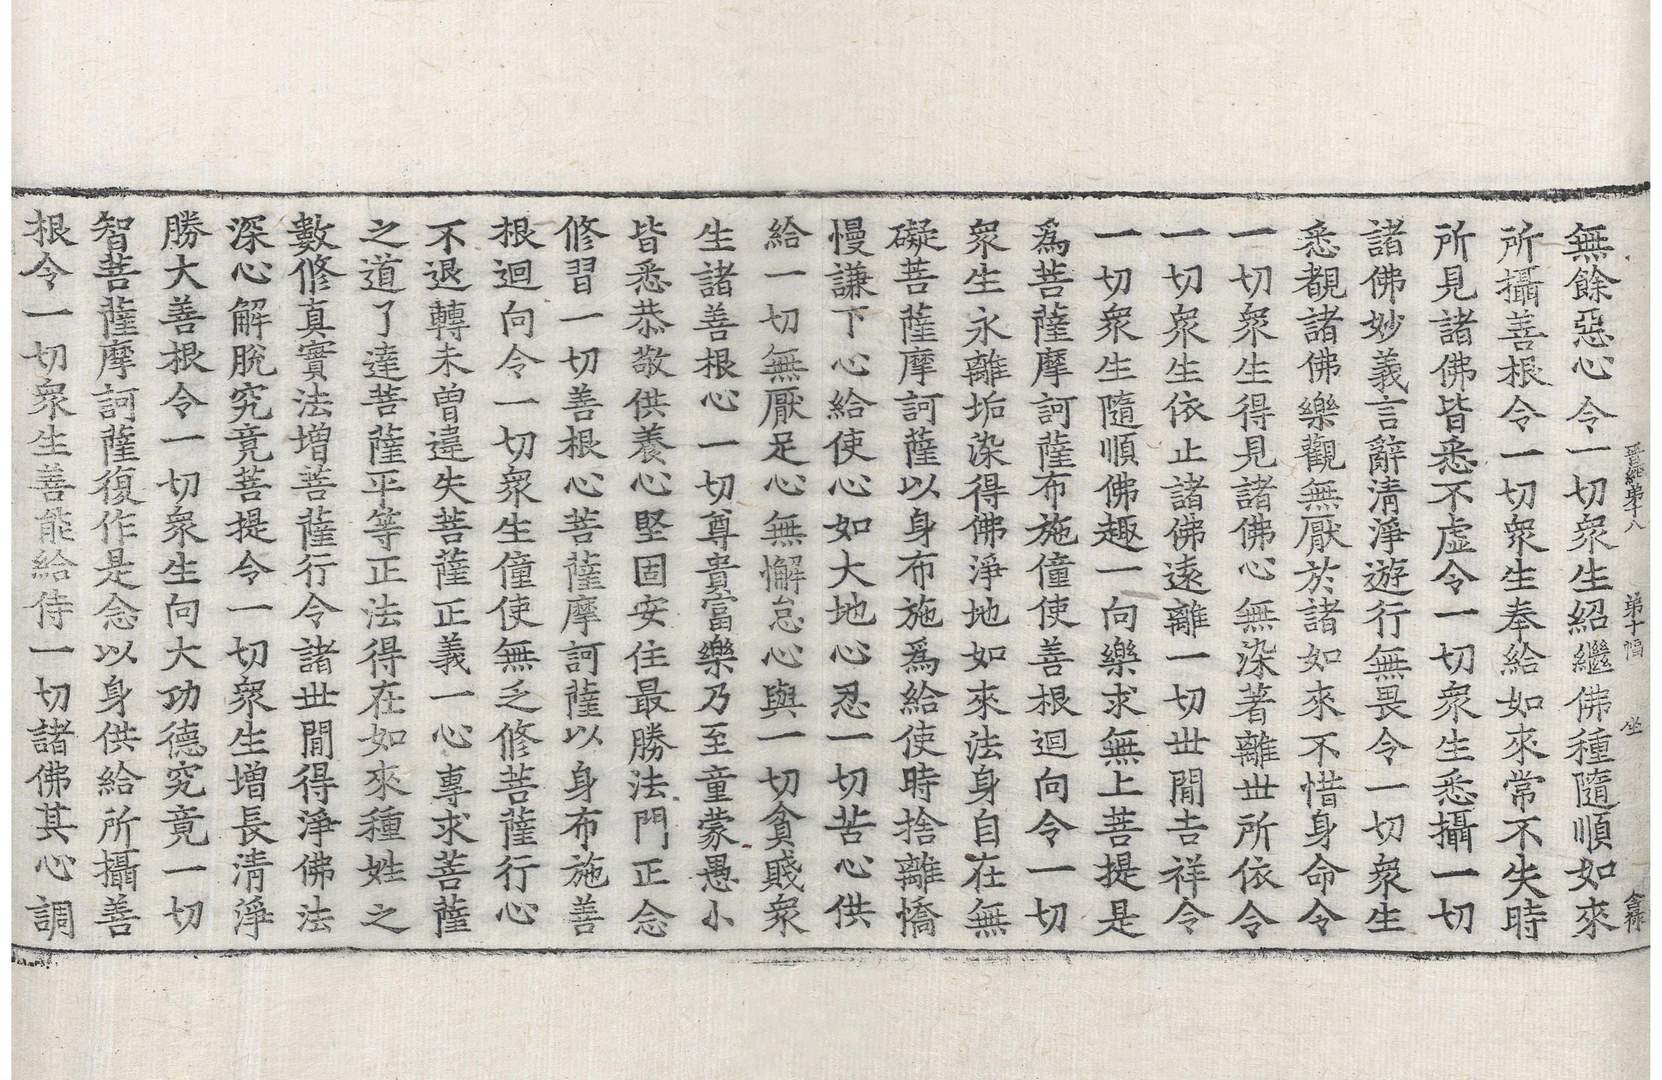 晋經第十八　第十幅　坐　含祿
無餘惡心令一切衆生紹繼佛種隨順如來
所攝善根令一切衆生奉給如來常不失時
所見諸佛皆悉不虛令一切衆生悉攝一切
諸佛妙義言辭清淨遊行無畏令一切衆生
悉覩諸佛樂觀無厭於諸如來不惜身命令
一切衆生得見諸佛心無染著離世所依令
一切衆生依止諸佛遠離一切世間吉祥令
一切衆生隨順佛趣一向樂求無上菩提是
爲菩薩摩訶薩布施僮使善根迴向令一切
衆生永離垢染得佛淨地如來法身自在無
礙菩薩摩訶薩以身布施爲給使時捨離憍
慢謙下心給使心如大地心忍一切苦心供
給一切無厭足心無懈怠心與一切貧賤衆
生諸善根心一切尊貴富樂乃至童蒙愚小
皆悉恭敬供養心堅固安住最勝法門正念
修習一切善根心菩薩摩訶薩以身布施善
根迴向令一切衆生僮使無乏修菩薩行心
不退轉未曾違失菩薩正義一心專求菩薩
之道了達菩薩平等正法得在如來種姓之
數修真實法增菩薩行令諸世間得淨佛法
深心解脫究竟菩提令一切衆生增長清淨
勝大善根令一切衆生向大功德究竟一切
智菩薩摩訶薩復作是念以身供給所攝善
根令一切衆生善能給侍一切諸佛其心調